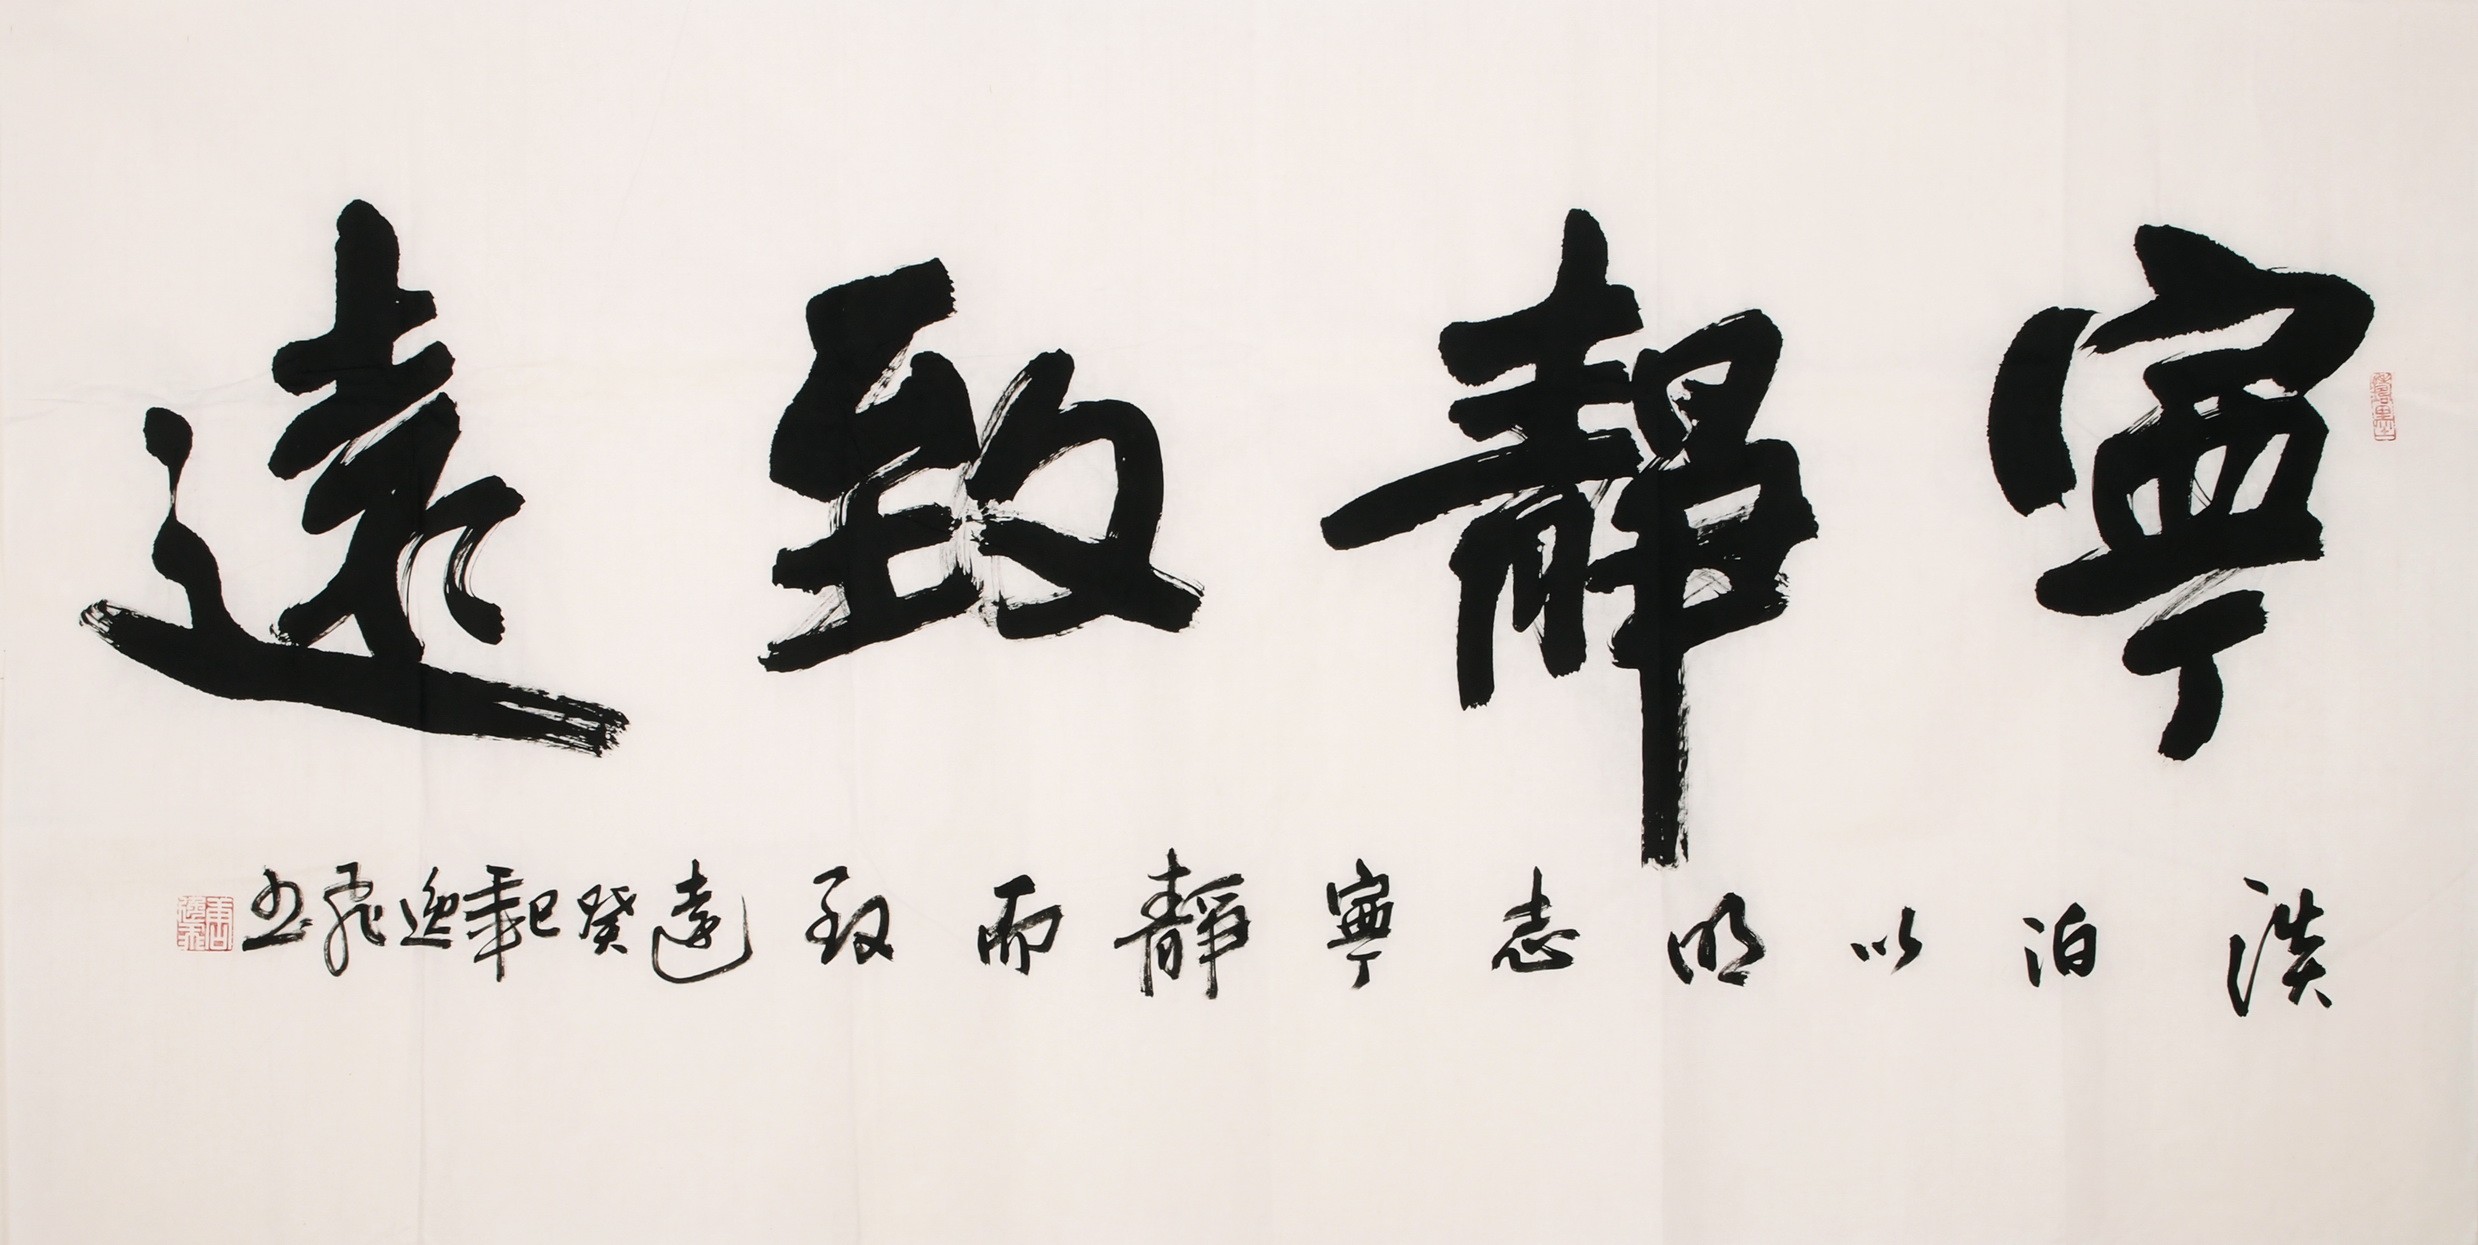 寧靜致遠
淡泊以明志寧靜而致遠癸巳年迎飛書